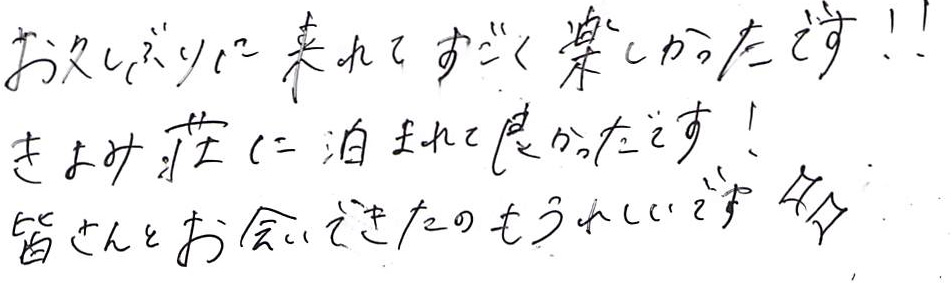 お久しぶりに来れてすごく楽しかったです!!
きよみ荘に泊まれて良かったです!
皆さんとお会いできたのもうれしいです